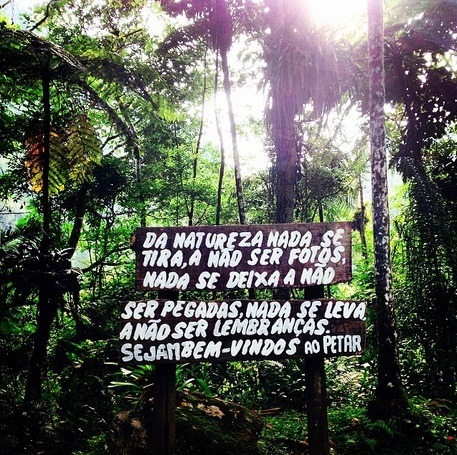 DA NATUREZA NADA SE
TIRA, A NÃO SER FOTOS,
NADA SE DEIXA A NÃO
SER PEGADAS, NADA SE LEVA
A NÃO SER LEMBRANÇAS.
SEJAM BEM-VINDOS AO PETAR